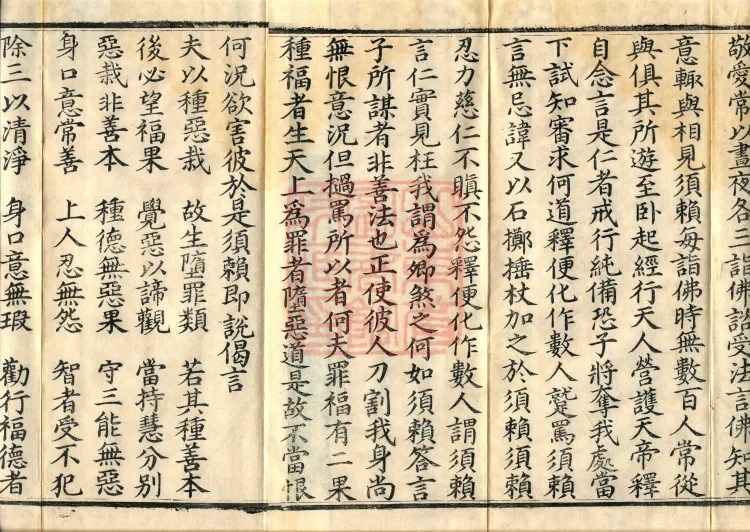 敬愛常以晝夜各三詣佛諮受法言佛知其
意輙與相見須賴每詣佛時無數百人常從
與俱其所遊至卧起經行天人營護天帝釋
自念言是仁者戒行純備恐子將奪我處當
下試知審求何道釋便化作數人蹵罵須賴
言無忌諱又以石擲捶杖加之於須賴須賴
忍力慈仁不瞋不怨釋便化作數人謂須賴
言仁實見枉我謂為卿煞之何如須賴答言
子所謀者非善法也正使彼人刀割我身尚
無恨意況但撾罵所以者何夫罪福有二果
種福者生天上為罪者墮惡道是故不當恨
何況欲害彼於是須賴即說偈言
夫以種惡栽 故生墮罪類 若其種善本
後必望福果 覺惡以諦觀 當持慧分別
惡栽非善本 種德無惡果 守三能無惡
身口意常善 上人忍無怨 智者受不犯
除三以清淨 身口意無瑕 勸行福德者